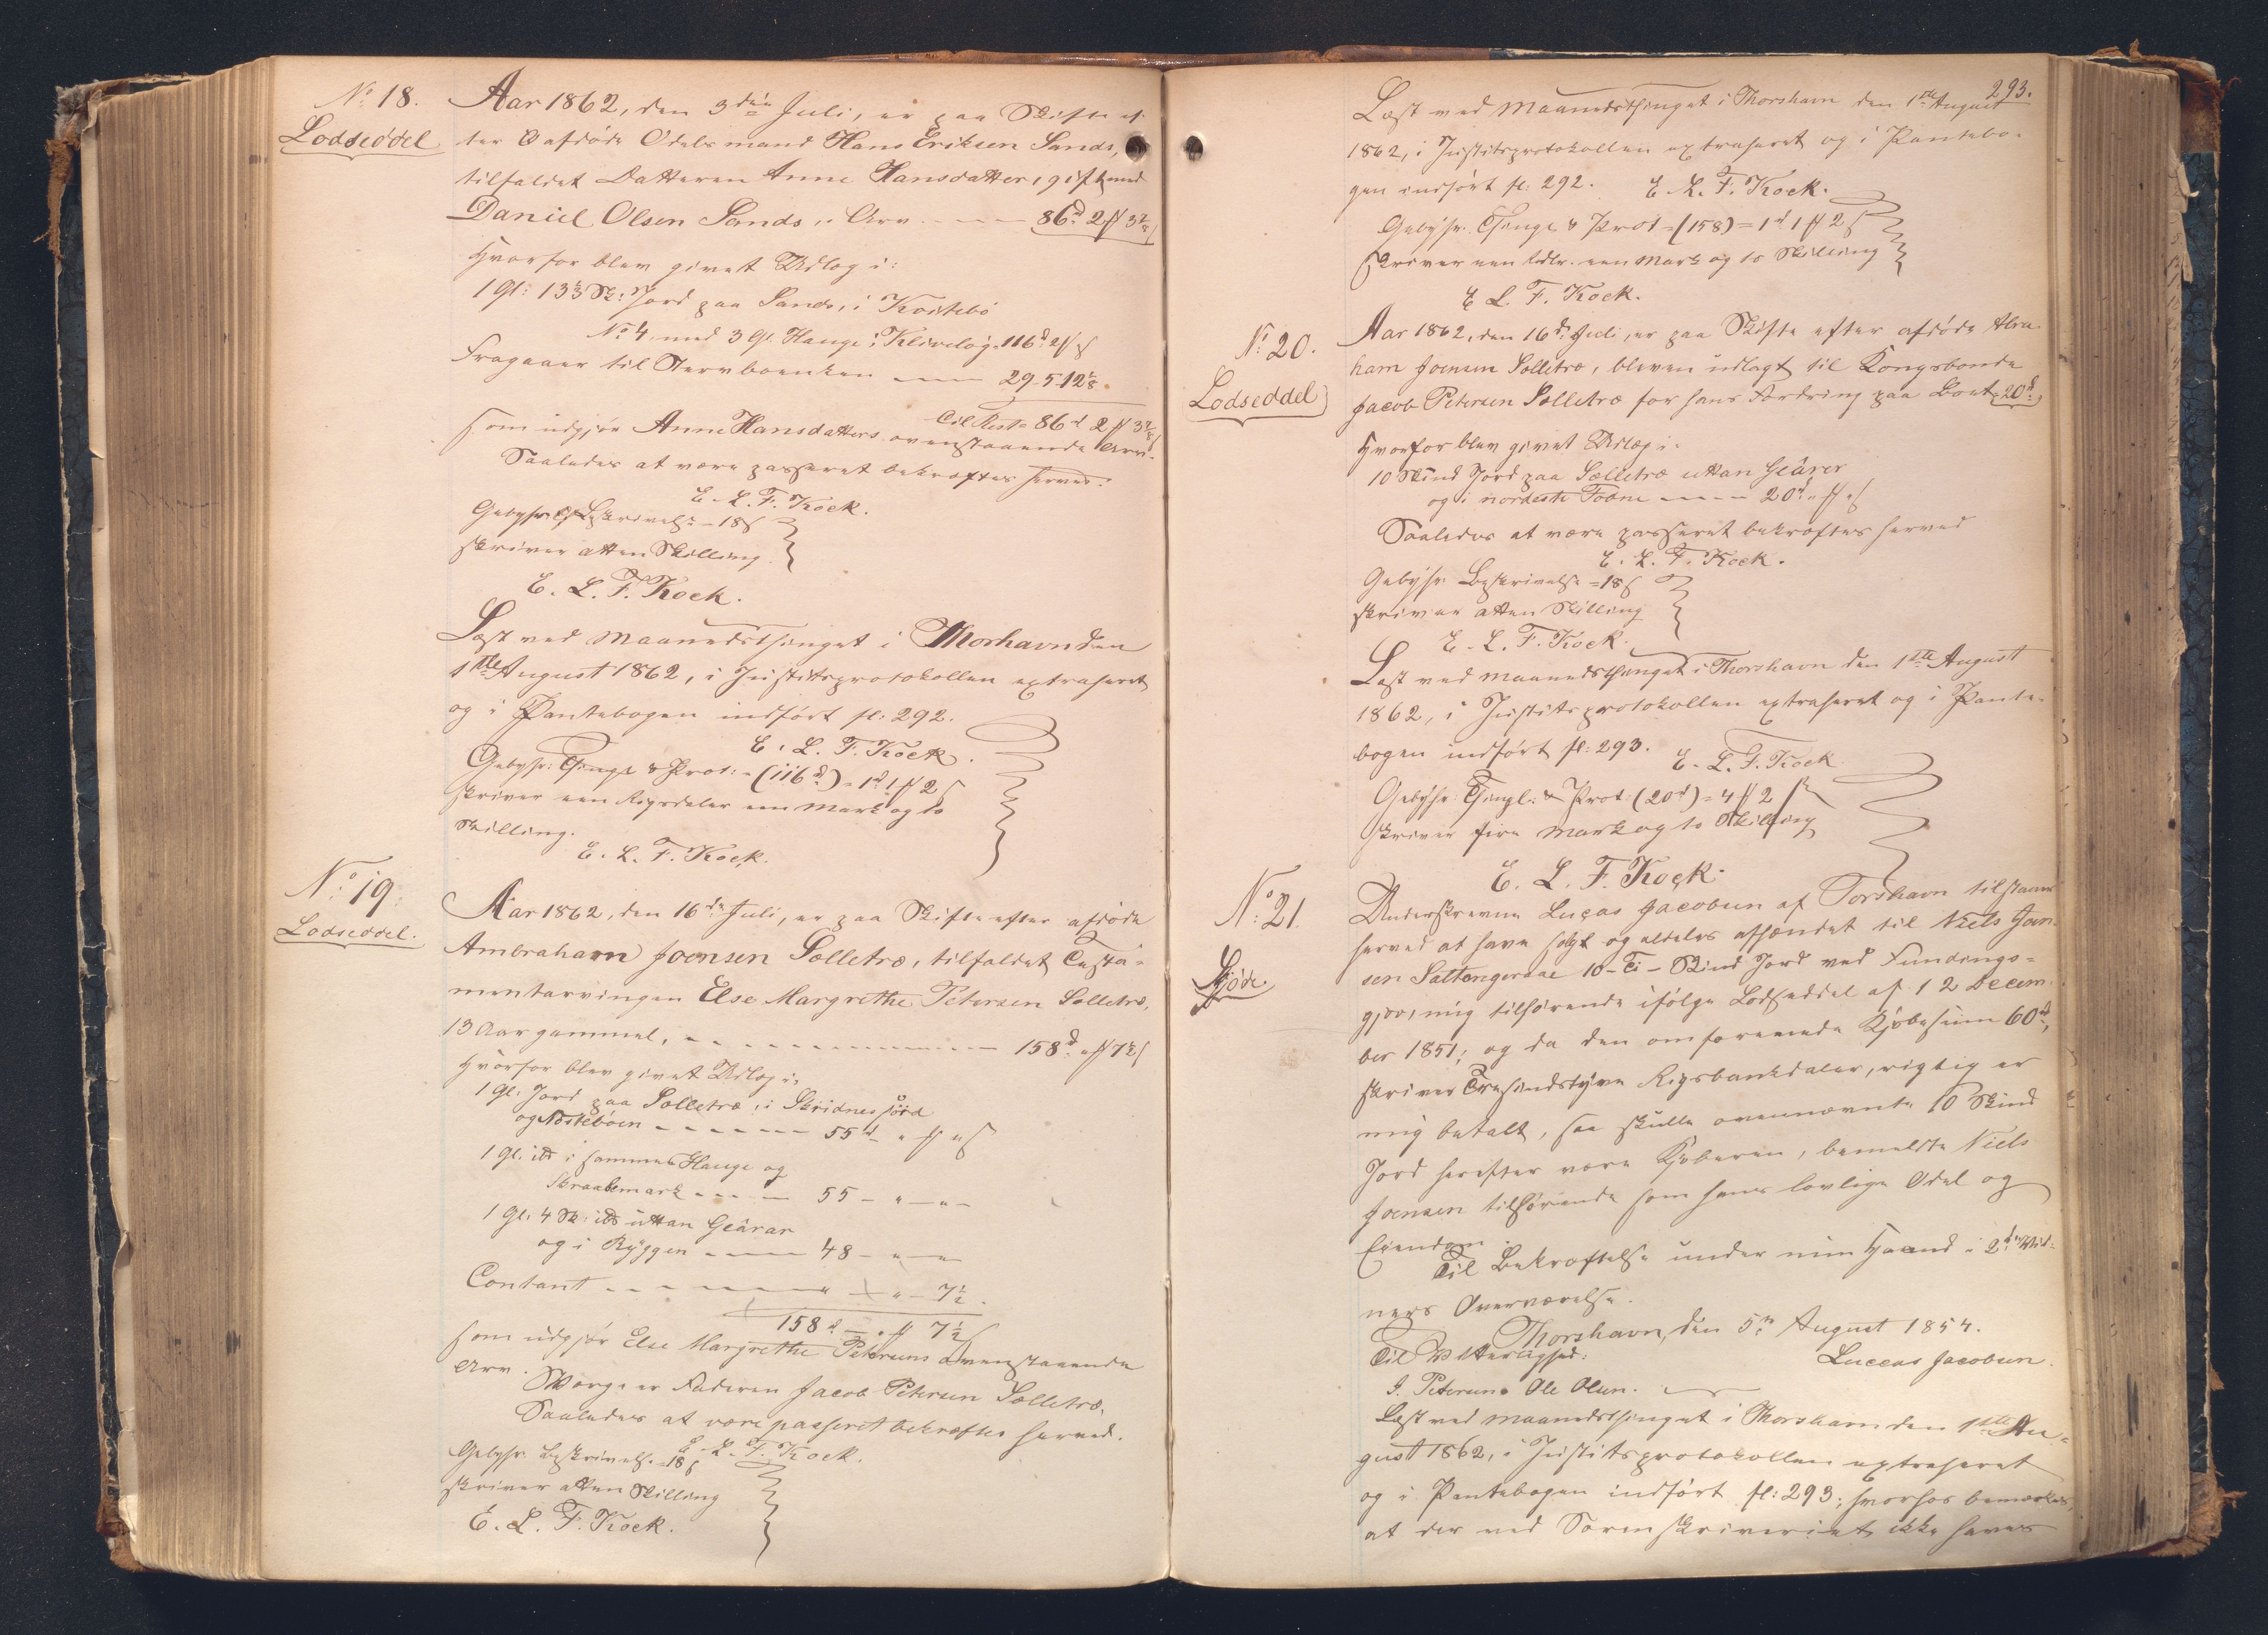 No 18.
Lodseddel
Aar 1862, den 3die Juli, er paa Skifte ef-
ter afdøde Odelsmand Hans Eriksen Sands,
tilfaldet Datteren Anne Hansdatter, gift med
Daniel Olsen Sands, i Arv - - - 86d 2 ß 3 7/8 s
Hvorfor blev givet Udlæg i:
1 Gl: 13 1/3 Sk: Jord paa Sands, i
No 4, med 3 Gl. Hauge i 116d 2 s
Fragaaer til Stervboenken - - 29 - 5 - 12 1/8
Til Rest = 86d 2 ß 3 7/8 s
som udgjør Anne Hansdatters ovenstaaende Arv.
Saaledes at være passeret bekræftes herved.
E. L. F. Kock.
Gebyhr Beskrivelse = 18 s
skriver atten Skilling
E. L. F. Kock.
Læst ved Maanedsthinget i Thorhavn den
1ste August 1862, i Justitsprotokollen extraheret
og i Pantebogen indført fl: 292.
E. L. F. Kock.
Gebyhr: Thingl & Prot: = (116d) = 1d 1 ß 2 s
skriver een Rigsdaler een Mark og to
Skilling.
E. L. F. Kock.
No 19.
Lodseddel.
Aar 1862, den 16de Juli, er paa Skifte efter afdøde
Ambraham Joensen Sælletræ, tilfaldet Testa-
mentarvingen Else Margrethe Petersen Sælletræ,
13 Aar gammel, - - - - - 158d " ß 7 1/2 s
Hvorfor blev givet Udlæg i:
1 Gl: Jord paa Sælletræ, i Skridnesjørd
og Nøstebøen - - - - - 55d " ß " s
1 Gl. ibd i sammes Hauge og
Skraabemark - - - - 55 - " - " -
1 Gl: 4 Sk: ibd uttan Geârar
og i Ryggen - - - - 48 - " - "
Contant - - - - - " - " - 7 1/2.
158d - " ß 7 1/2 s
som udgjør Else Margrethe Petersens ovenstaaende
Arv. Værge er Faderen Jacob Petersen Sælletræ.
Saaledes at være passeret bekræftes herved.
E. L. F. Kock.
Gebyhr Beskrivelse = 18 s
skriver atten Skilling
E. L. F. Kock.
293.
Læst ved Maanedsthinget i Thorshavn den 1ste August
1862, i Justitsprotokollen extraheret og i Pantebo-
gen indført fl: 292. E. L. F. Kock.
Gebyhr. Thingl & Prot = (158) = 1d 1 ß 2 s
skriver een Rdlr. een Mark og to Skilling
E. L. F. Kock.
No 20.
Lodseddel
Aar 1862, den 16de Juli, er paa Skifte efter afdøde Abra-
ham Joensen Sælletræ, bleven udlagt til Kongsbonde
Jacob Petersen Sælletræ for hans Fordring paa Boet = 20d,
Hvorfor blev givet Udlæg i:
10 Skind Jord paa Sælletræ uttan Geârar
og i nordeste Tødne - - - - 20d " ß " s
Saaledes at være passeret bekræftes herved
E. L. F. Kock.
Gebyhr Beskrivelse = 18 s
skriver atten Skilling
E. L. F. Kock.
Læst ved Maanedsthinget i Thorshavn den 1ste August
1862, i Justitsprotokollen extraheret og i Pante-
bogen indført fl: 293. E. L. F. Kock
Gebyhr Thingl: & Prot: (20d) = 4 ß 2 s
skriver fire Mark og to Skilling
E. L. F. Kock.
No 21.
Skjøde
Underskrevne Lucas Jacobsen af Torshavn tilstaaer
herved at have solgt og aldeles afhændet til Niels Joen-
sen Saltangeraae 10 - Ti - Skind Jord ved Fundings-
gjov, mig tilhørende ifølge Lodseddel af 12 Decem-
ber 1851; og da den omforenede Kjøbesum 60d,
skriver Tresindstyve Rigsbankdaler, rigtig er
mig betalt, saa skulle ovennævnte 10 Skind
Jord herefter være Kjøberen, bemeldte Niels
Joensen tilhørende som hans lovlige Odel og
Eiendom.
Til Bekræftelse under min Haand i 2de Vid-
ners Overværelse.
Thorshavn, den 5te August 1854.
Til Vitterlighed: Luccas Jacobsen.
J. Petersen. Ole Olsen.
Læst ved Maanedsthinget i Thorshavn den 1ste Au-
gust 1862, i Justitsprotokollen extraheret
og i Pantebogen indført fl: 293; hvorhos bemærkes,
at der ved Sorenskriveriet ikke haves